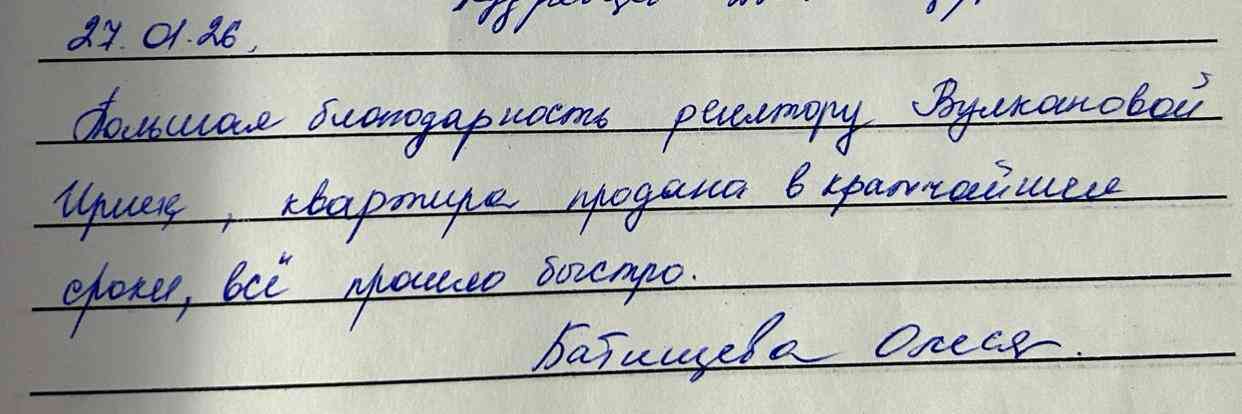 27.01.26.
Большая благодарность риелтору Вулкановой
Ирине, квартира продана в кратчайшие
сроки, всё прошло быстро.
Батищева Олеся.